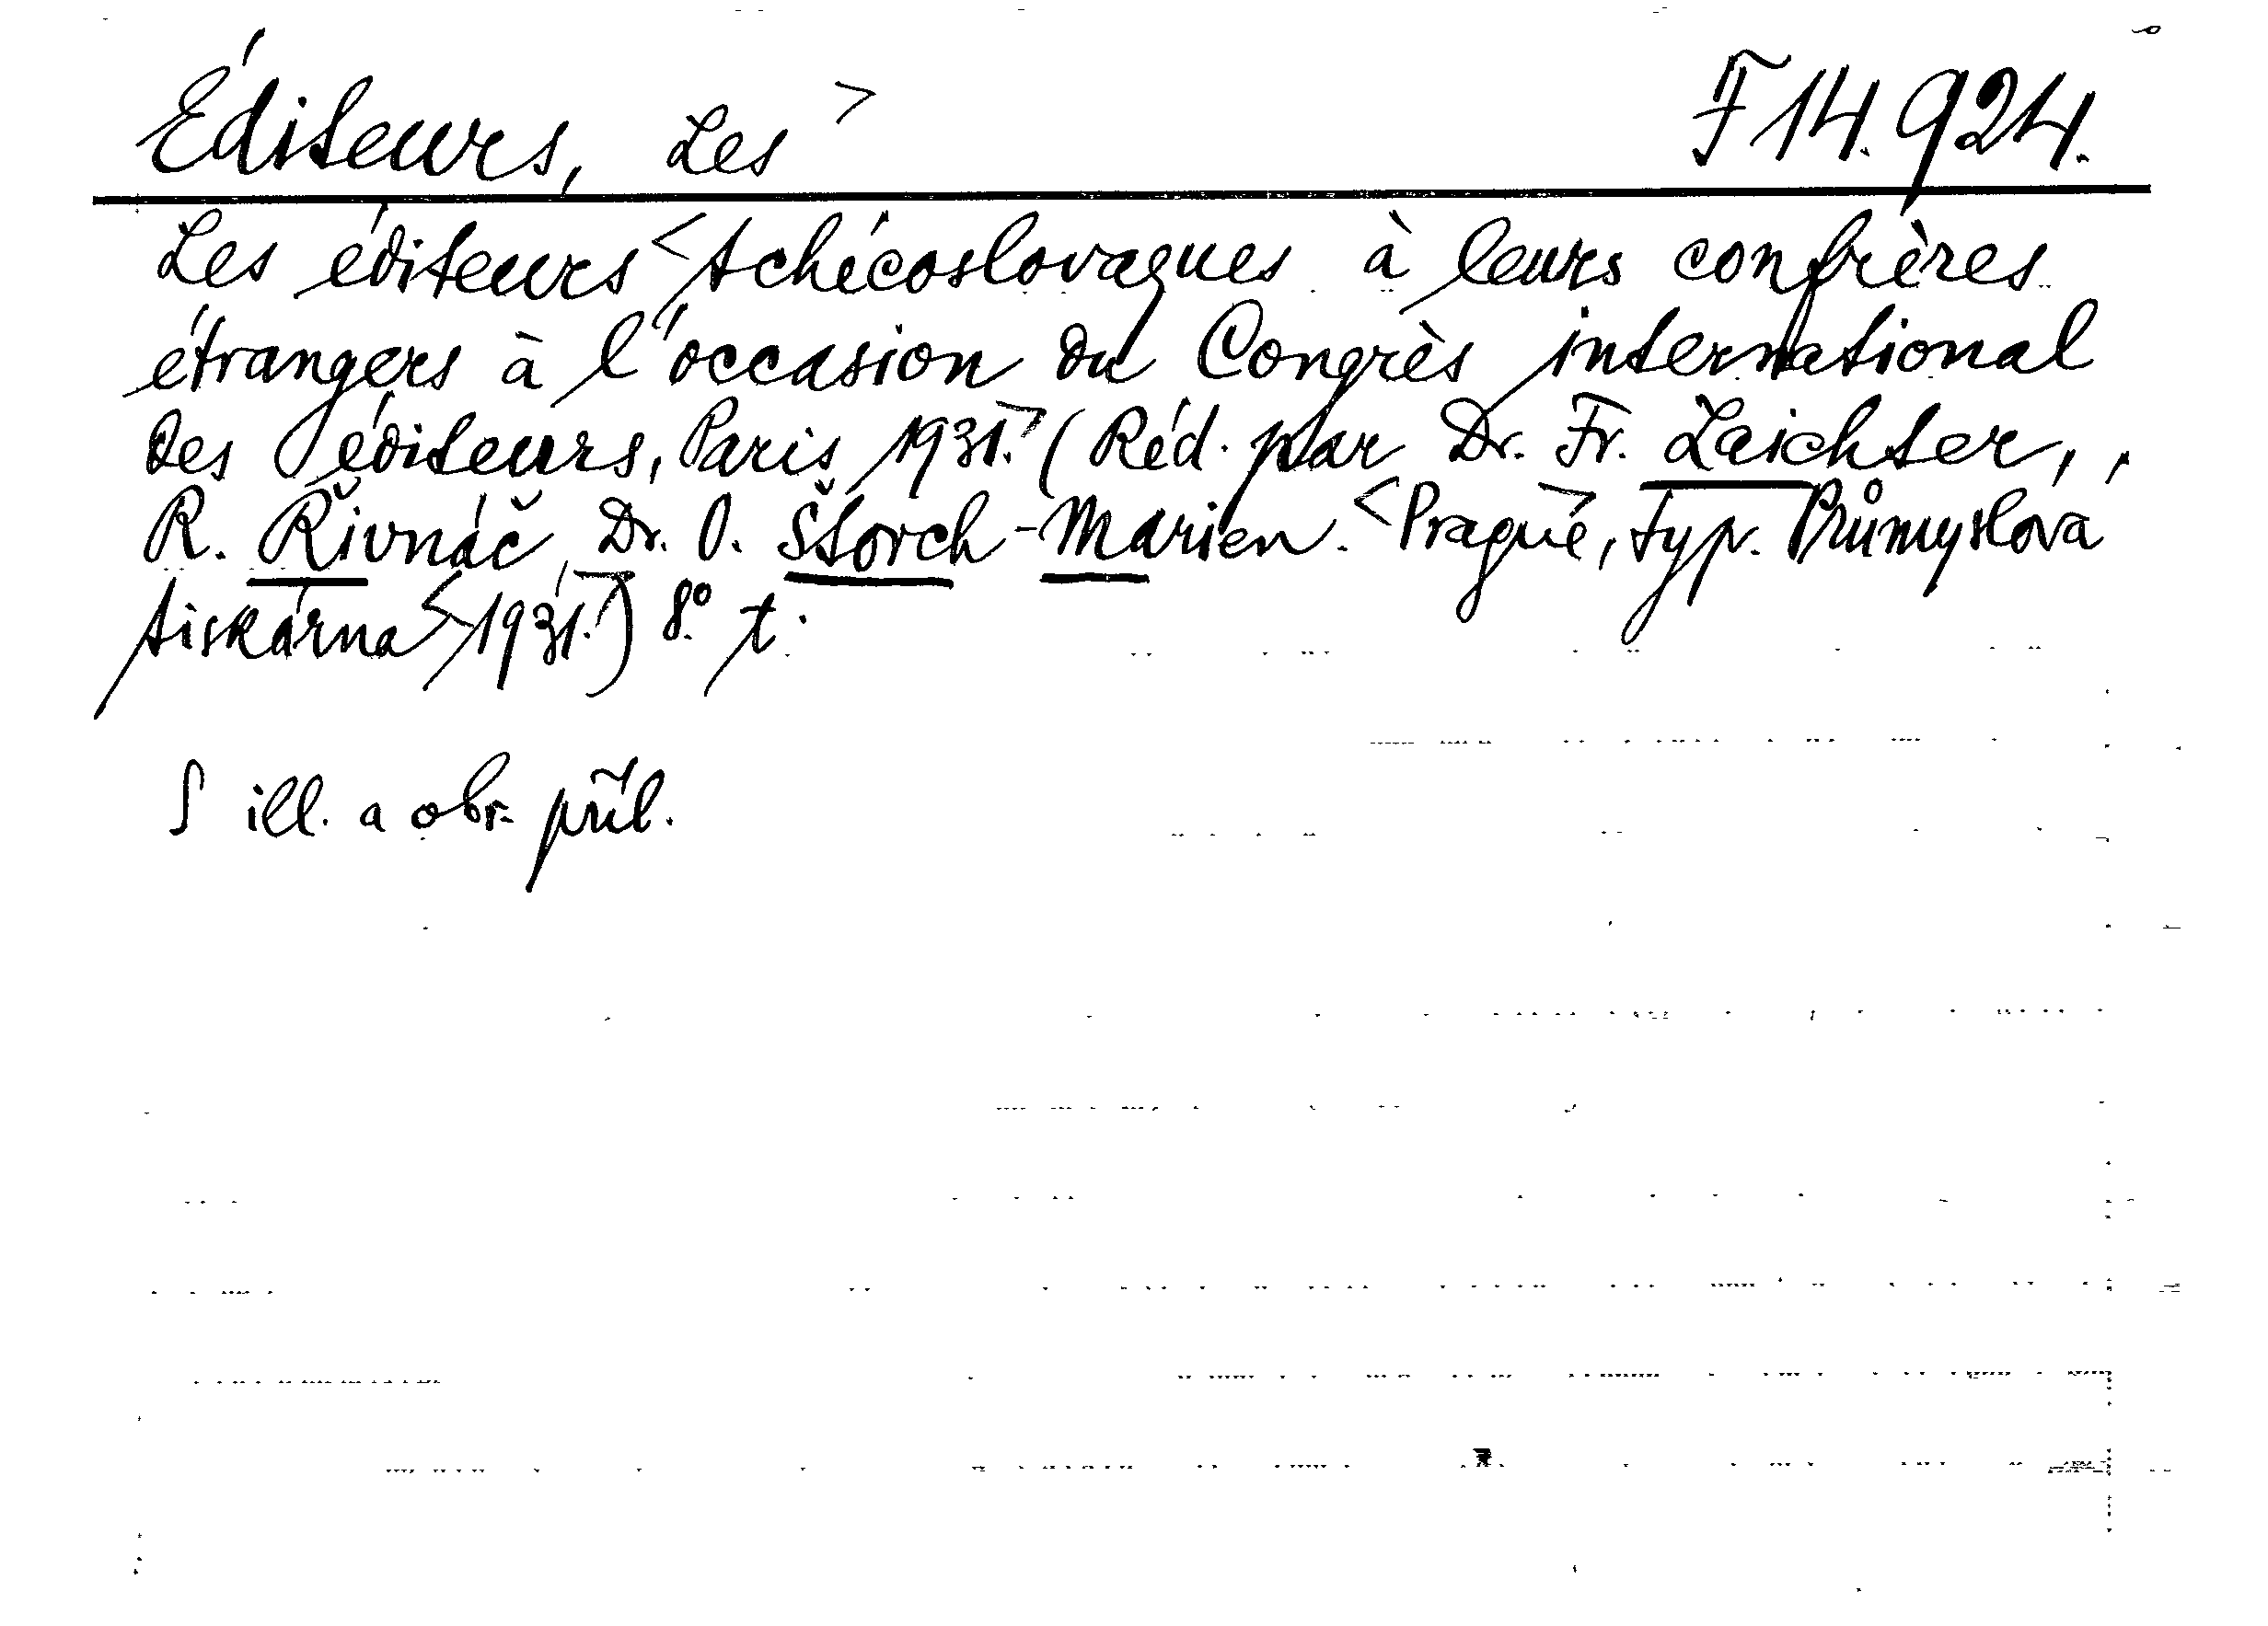 Éditeurs, Les > F 14.924.
Les éditeurs < tchécoslovaques à leurs confrères
étrangers à l'occasion du Congrès international
des éditeurs, Paris 1931.> (Réd. par Dr. Fr. Laichter,
R. Řivnáč, Dr. O. Štorch-Marien. <Prague>, typ. Průmyslová
tiskárna <1931.>) 8.° t.
S ill. a obr. příl.